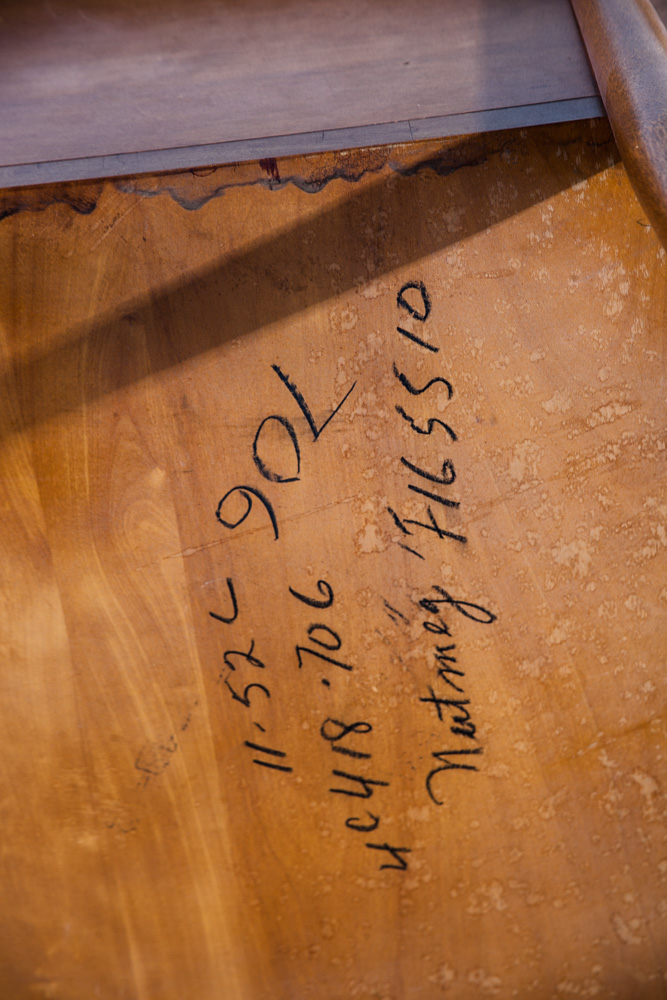 11.52L 90L
4C418.706
Nutmeg 7165510